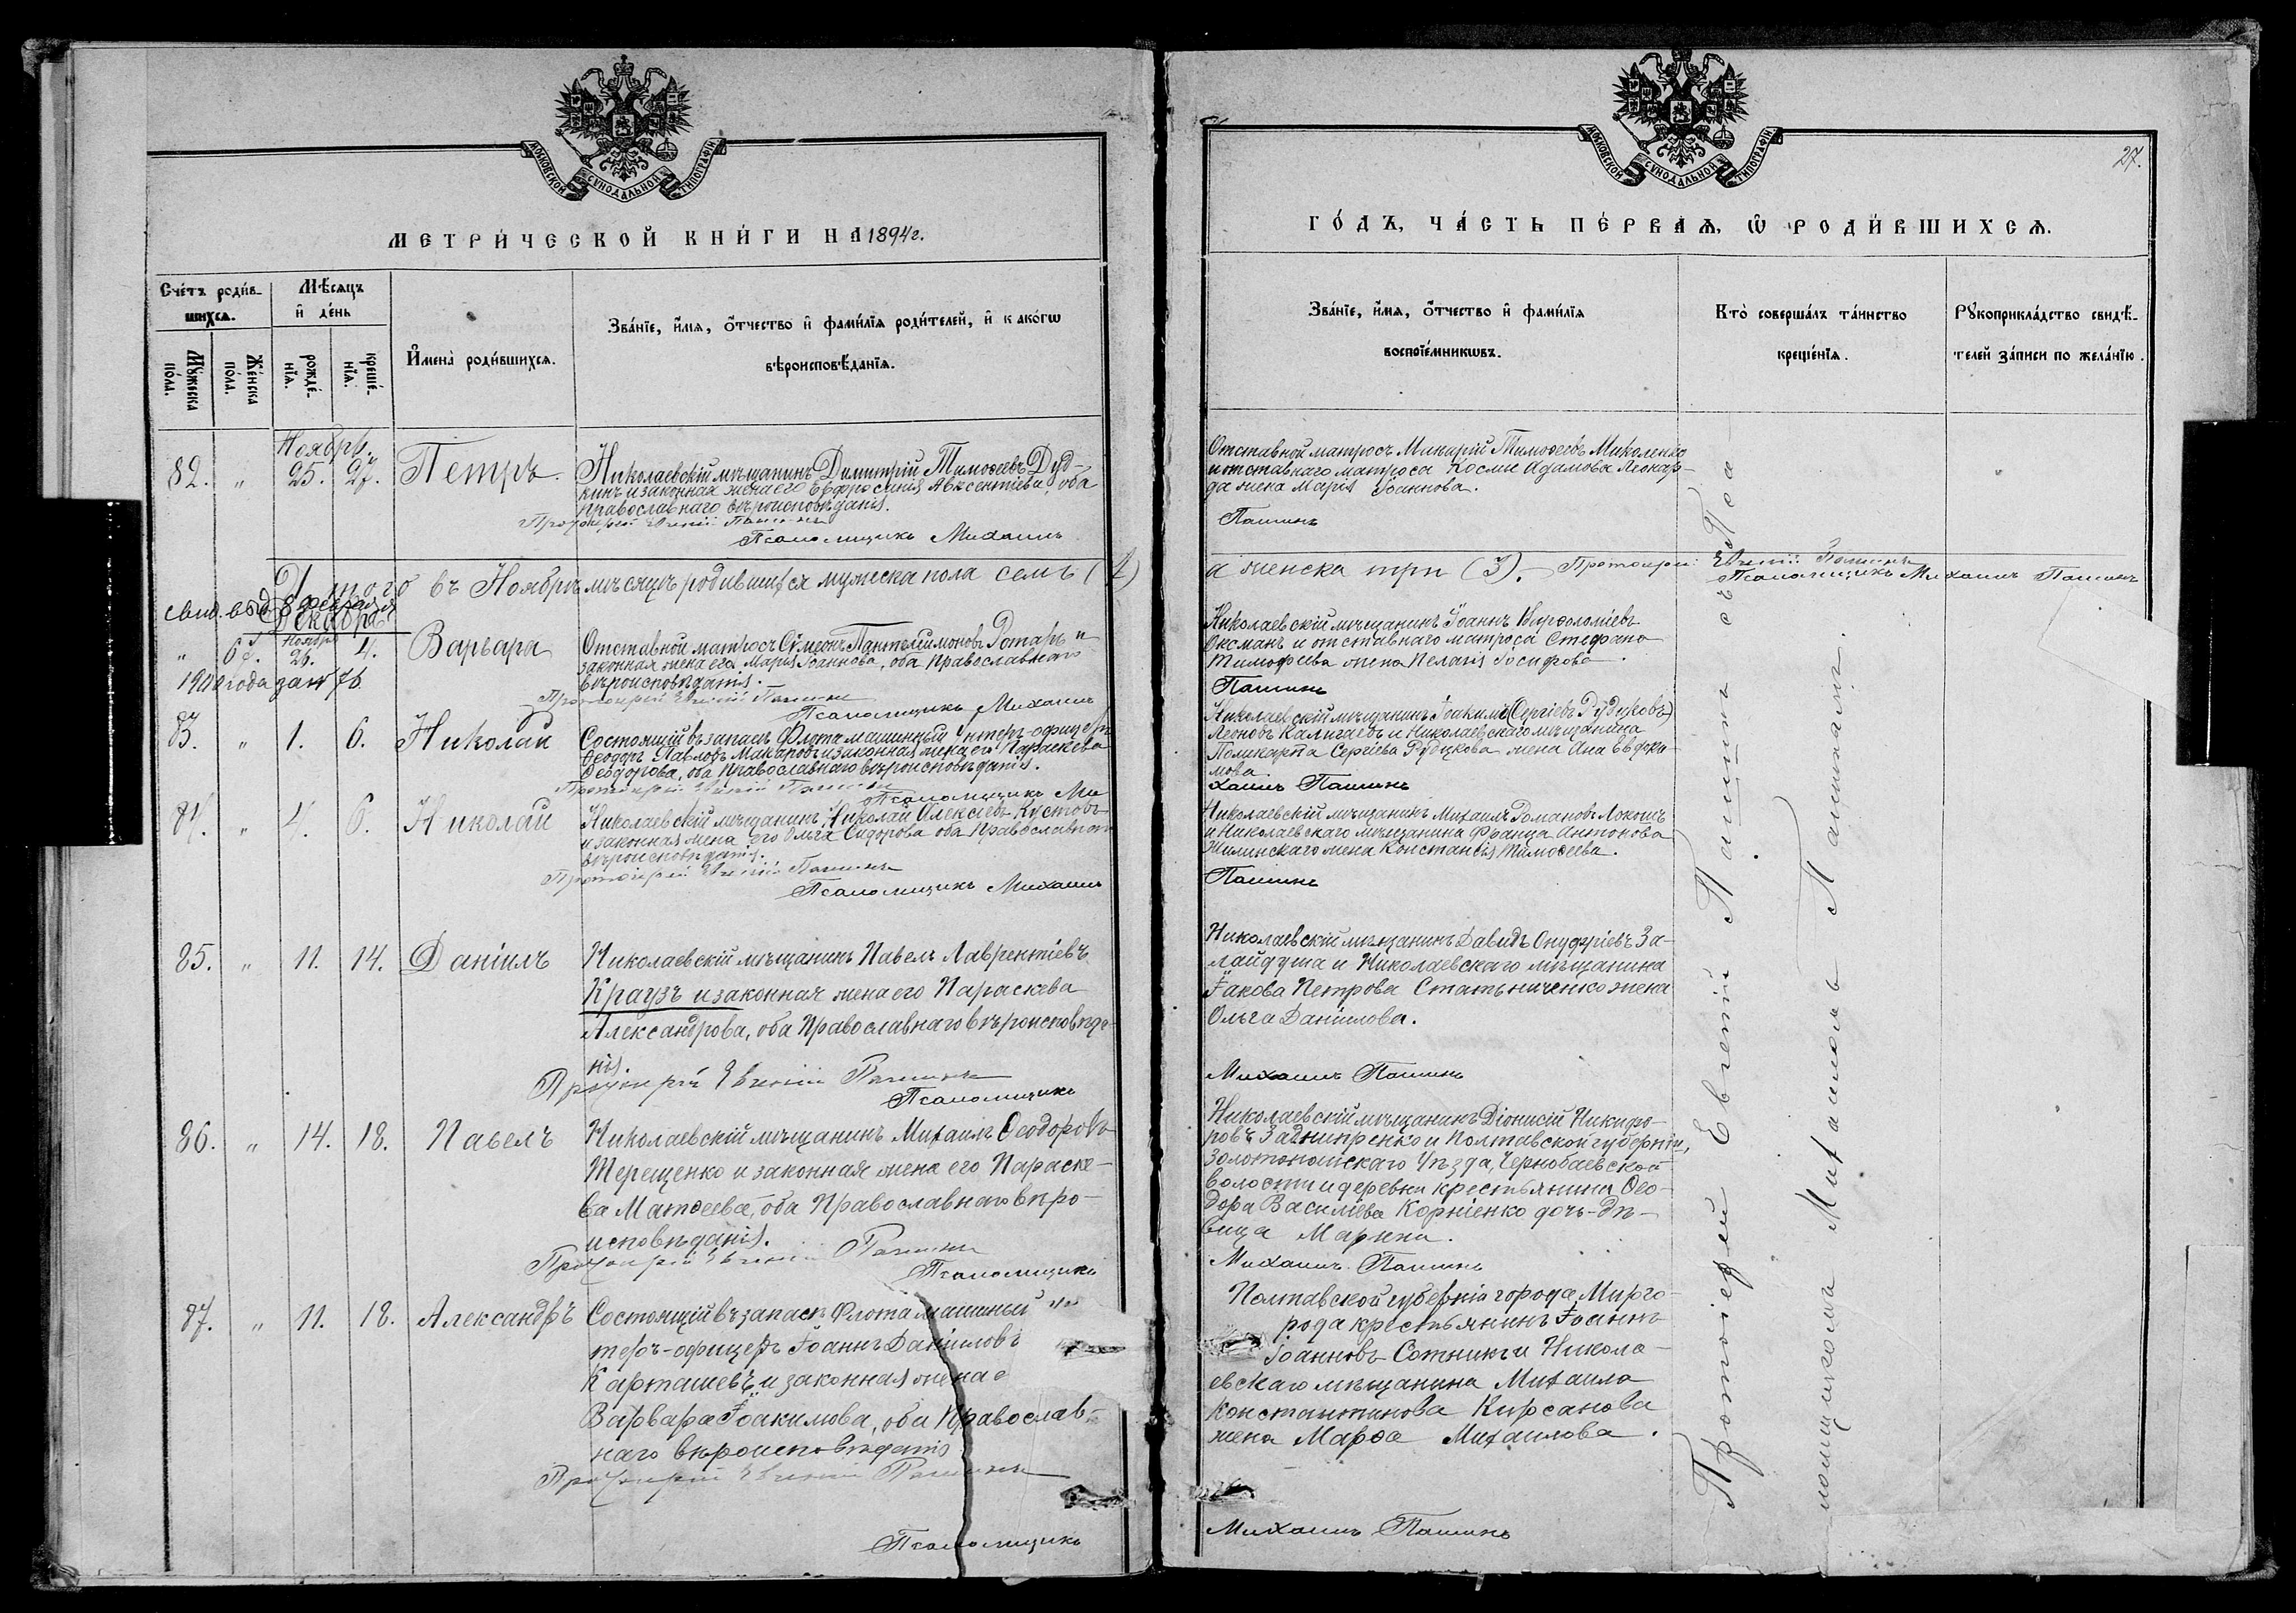 МОСКОВСКОЙ СѴНОДАЛЬНОЙ ТИПОГРАФІИ
МЕТРИ́ЧЕСКОЙ КНИ́ГИ НА 1894 г.
Сче́тъ роди́в-
шихсѧ.
Мѣ́сѧцъ
и҆ де́нь
Мꙋ́жеска по́ла.
Же́нска по́ла.
рожде́-нїѧ.
креще́-нїѧ.
И҆мена̀ роди́вшихсѧ.
Зва́нїе, и҆́мѧ, ѻ҆́тчество и҆ фами́лїѧ роди́телей, и҆ како́гѡ
вѣроисповѣ́данїѧ.
Ноябрь.
82. " 25. 27. Петръ.
Николаевскій мѣщанинъ Димитрій Тимоѳеевъ Дуд-
кинъ и законная жена его Евфросинія Авксентіева, оба
православнаго вѣроисповѣданія.
Протоіерей Евгеній Пашинъ
Псаломщикъ Михаилъ
Итого въ Ноябрѣ мѣсяцѣ родившихся мужеска пола семь (7)
свид. выд. 8 февраля
Декабрь
" 67. Ноября 26. 4. Варвара
Отставной матросъ Сѵмеонъ Пантелиимоновъ Ротарь и
законная жена его Марія Іоаннова, оба православнаго
вѣроисповѣданія.
1900 года за № 76.
Протоіерей Евгеній Пашинъ
Псаломщикъ Михаилъ
83. " 1. 6. Николай
Состоящій въ запасѣ флота машинный Унтеръ-офицеръ
Ѳеодоръ Павловъ Макаровъ и законная жена его Параскева
Ѳеодорова, оба Православнаго вѣроисповѣданія.
Протоіерей Евгеній Пашинъ
Псаломщикъ Ми
84. " 4. 6. Николай
Николаевскій мѣщанинъ Николай Алексіевъ Кустовъ
и законная жена его Ольга Сидорова оба Православнаго
вѣроисповѣданія.
Протоіерей Евгеній Пашинъ
Псаломщикъ Михаилъ
85. " 11. 14. Даніилъ
Николаевскій мѣщанинъ Павелъ Лаврентіевъ
Краузъ и законная жена его Параскева
Александрова, оба Православнаго вѣроисповѣда-
нія.
Протоіерей Евгеній Пашинъ
Псаломщикъ
86. " 14. 18. Павелъ
Николаевскій мѣщанинъ Михаилъ Ѳеодоровъ
Терещенко и законная жена его Параске-
ва Матѳеева, оба Православнаго вѣро-
исповѣданія.
Протоіерей Евгеній Пашинъ
Псаломщикъ
87. " 11. 18. Александръ
Состоящій въ запасѣ Флота машинный Ун
теръ-офицеръ Іоаннъ Даніиловъ
Карташевъ и законная жена е
Варвара Іоакимова, оба Православ-
наго вѣроисповѣданія
Протоіерей Евгеній Пашинъ
Псаломщикъ
МОСКОВСКОЙ СѴНОДАЛЬНОЙ ТИПОГРАФІИ
27.
ГО́ДЪ, ЧА́СТЬ ПЕ́РВАѦ, Ѡ҆ РОДИ́ВШИХСѦ.
Зва́нїе, и҆́мѧ, ѻ҆́тчество и҆ фами́лїѧ
воспрїе́мникѡвъ.
Кто̀ соверша́лъ та́инство
креще́нїѧ.
Рꙋкоприкла́дство свидѣ́-
телей за́писи по жела́нїю.
Отставной матросъ Макарій Тимоѳеевъ Миколенко
и отставнаго матроса Косми Адамова Леонар-
да жена Марія Іоаннова.
Пашинъ
а женска три (3). Протоіерей Евгеній Пашинъ
Псаломщикъ Михаилъ Пашинъ
Николаевскій мѣщанинъ Іоаннъ Варѳоломіевъ
Оксманъ и отставнаго матроса Стефана
Тимофеева жена Пелагія Іосифова.
Пашинъ
Николаевскій мѣщанинъ Іоакимъ (Сергіевъ Рудцковъ)
Леоновъ Калигаевъ и Николаевскаго мѣщанина
Поликарпа Сергіева Рудцкова жена Анна Евфи-
мова.
хаилъ Пашинъ
Николаевскій мѣщанинъ Михаилъ Романовъ Локошъ
и Николаевскаго мѣщанина Франца Антонова
Жилинскаго жена Констанція Тимоѳеева.
Пашинъ
Николаевскій мѣщанинъ Давидъ Онуфріевъ За-
лайдуша и Николаевскаго мѣщанина
Іакова Петрова Статьниченко жена
Ольга Даніилова.
Михаилъ Пашинъ
Николаевскій мѣщанинъ Діонисій Никифо-
ровъ Заднипренко и Полтавской губерніи,
Золотоношскаго Уѣзда, Чернобаевской
волости и деревни крестьянина Ѳео-
дора Василіева Корніенко дочь-дѣ-
вица Марина.
Михаилъ Пашинъ
Полтавской губерніи города Мирго-
рода крестьянинъ Іоаннъ
Іоанновъ Сотникъ и Никола-
евскаго мѣщанина Михаила
Константинова Кирсанова
жена Марѳа Михаилова.
Михаилъ Пашинъ
Протоіерей Евгеній Пашинъ съ Пса-
ломщикомъ Михаиломъ Пашинымъ.